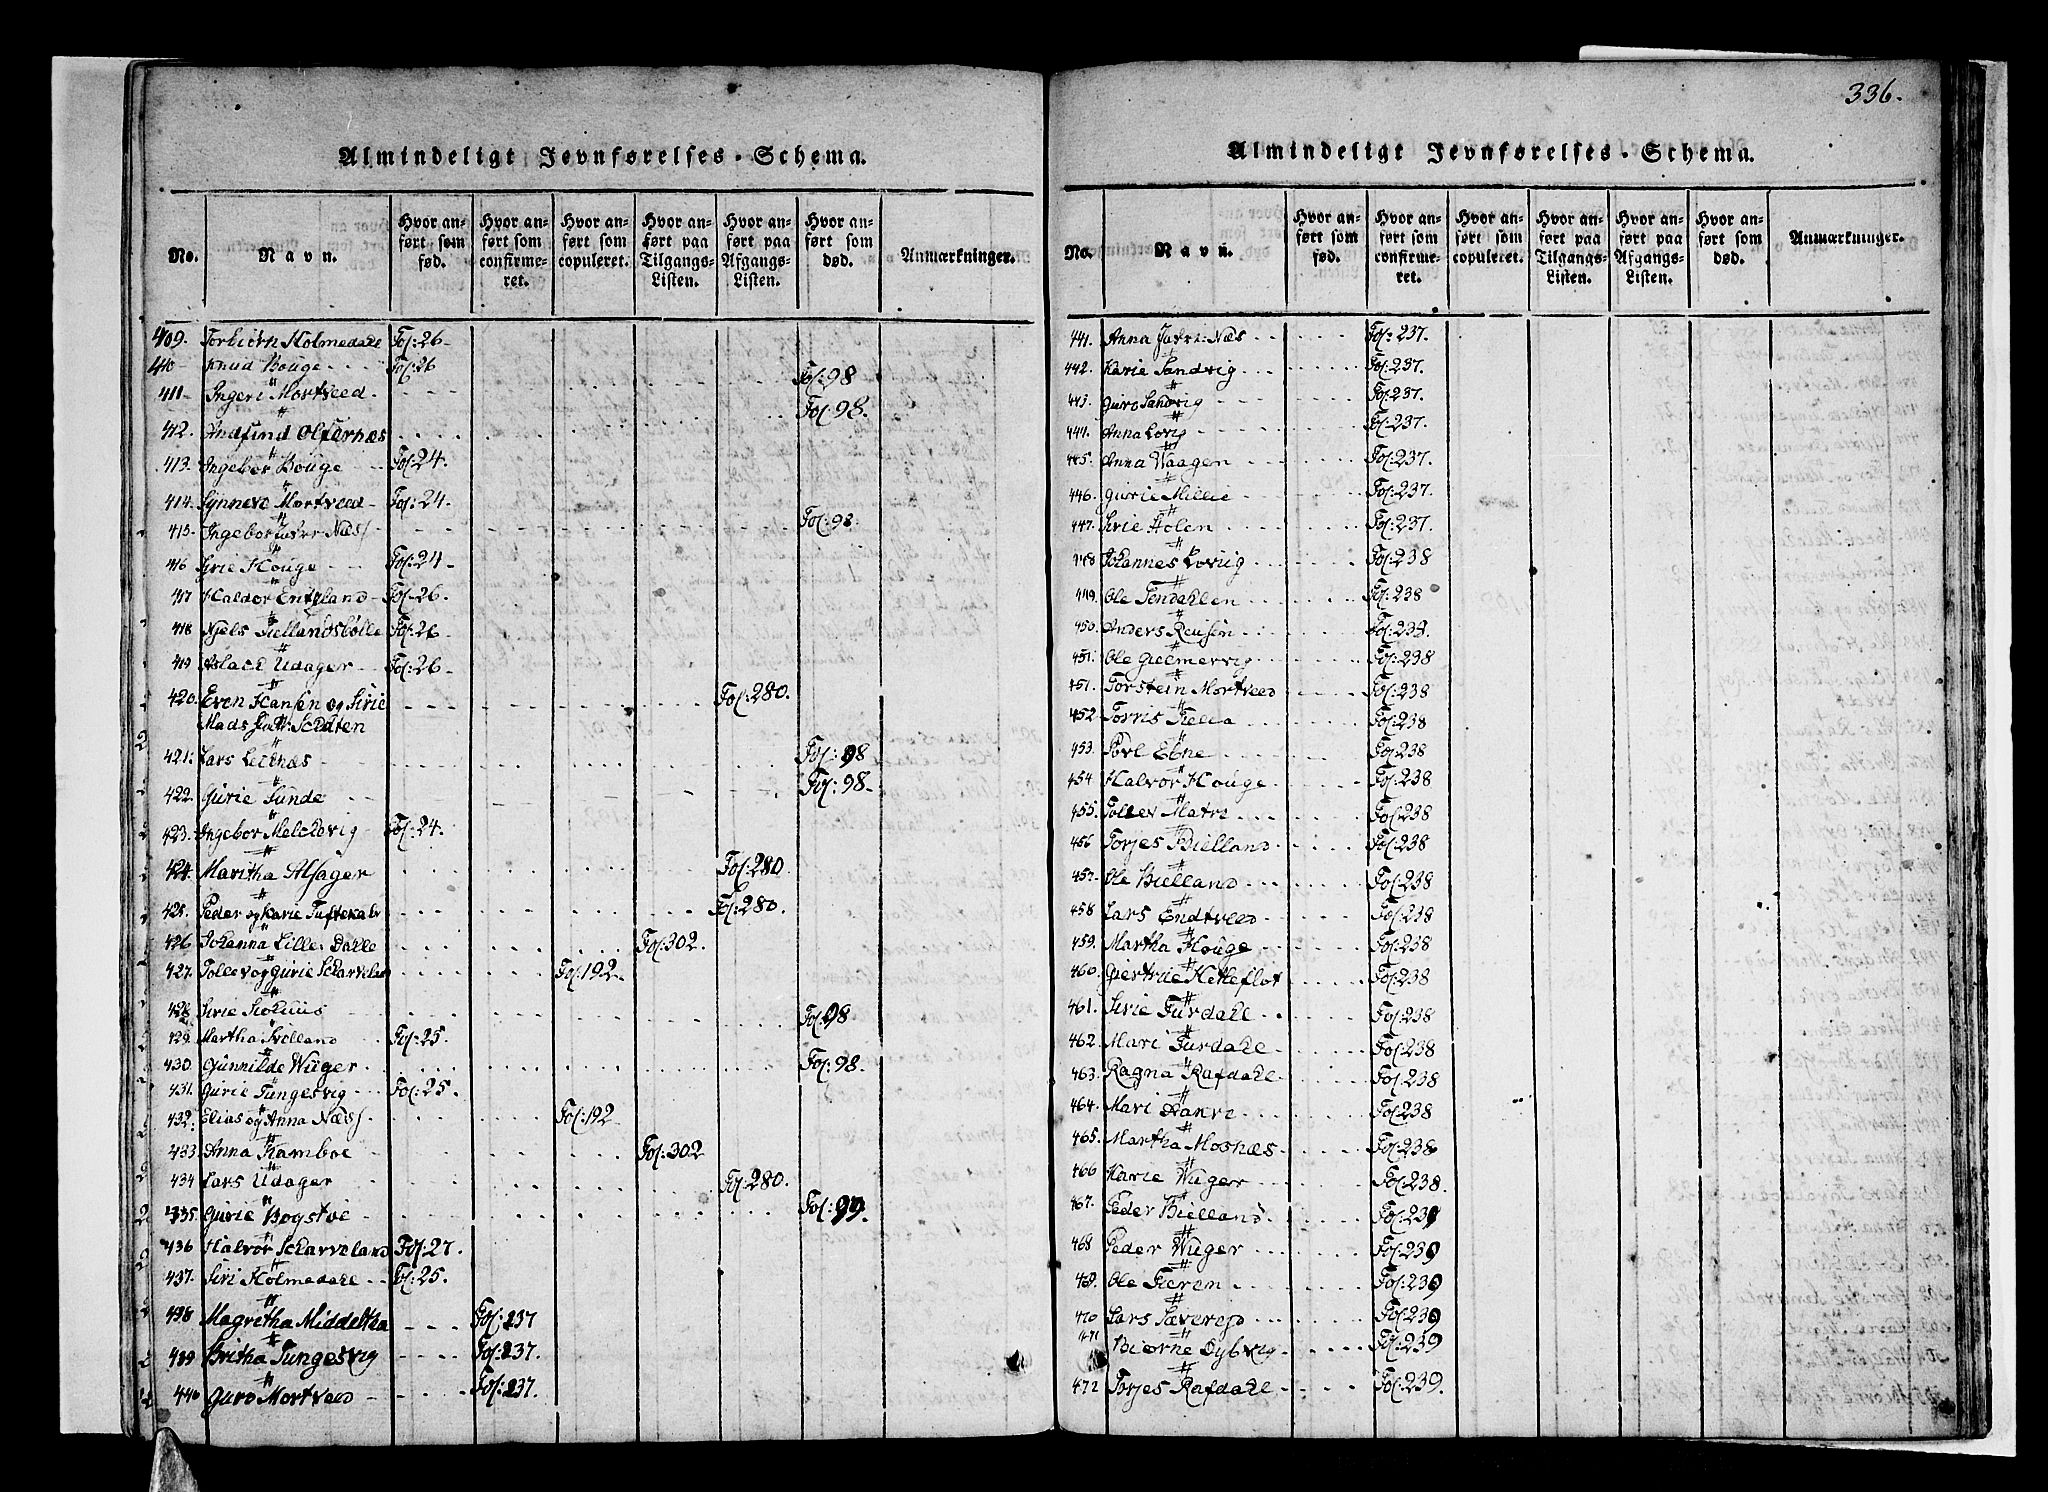 336.
Almindeligt Jevnførelses-Schema.
No. Navn. Hvor anført som fød. Hvor anført som confirmeret. Hvor anført som copuleret. Hvor anført paa Tilgangs-Listen. Hvor anført paa Afgangs-Listen. Hvor anført som død. Anmærkninger.
409. Torbiørn Holmedahl Fol: 26-
410- Knud Houge Fol: 26
411- Ingeri Mortveed. Fol: 98
412. Andfind Olfernæs Fol: 98.
413. Ingebor Houge Fol: 24.
414. Synneve Mortveed- Fol: 24.
415. Ingebor Næss Fol: 98.
416 Sirie Houge Fol: 24-
417 Haldor Enteland- Fol: 26.
418 Njels Fiellandsbølle Fol: 26-
419 Aslack Udager Fol: 26-
420. Even Hansen og Sirie Fol: 280.
Mads
421: Lars Leeknæs Fol: 98
422. Gurie Sunde Fol: 98-
423. Ingebor Melchevig Fol: 24.
424. Maritha Alsager Fol: 280.
425. Peder og Karie Tuftekalv Fol: 280.
426 Johanna Lille Dalle Fol: 302.
427. Tollev og Gurie Scharveland Fol: 192-
428 Sirie Fol: 98
429. Martha Fielland Fol: 25.
430. Gunnilde Wuger Fol: 98.
431. Gurie Tungesvig Fol: 25.
432. Elias og Anna Næss Fol: 192-
433 Anna Kamboe Fol: 302
434 Lars Udager Fol: 280.
435. Gurie Bogstøe Fol: 99.
436 Halvor Scharveland Fol: 27.
437. Siri Holmedahl Fol: 25.
438 Magretha Middeltha Fol: 237
439 Britha Tungesvig Fol: 237.
440 Guro Mortveed Fol: 237.
Almindeligt Jevnførelses-Schema.
No. Navn. Hvor anført som fød. Hvor anført som confirmeret. Hvor anført som copuleret. Hvor anført paa Tilgangs-Listen. Hvor anført paa Afgangs-Listen. Hvor anført som død. Anmærkninger.
441. Anna Næs Fol: 237.
442. Karie Sandvig Fol: 237.
443. Guro Sandvig Fol: 237.
444. Anna Lovig Fol: 237.
445. Anna Waagen Fol: 237.
446. Gurie Millie Fol: 237.
447. Sirie Holen Fol: 237.
448 Johannes Loviig Fol: 238
449. Ole Tendahlen Fol: 238
450. Anders Reusen Fol: 238.
451. Ole Giermervig Fol: 238
451. Torstein Mortveed Fol: 238
452 Torris Fol: 238
453. Povl Ebne Fol: 238
454 Halvor Houge Fol: 238
455. Tollev Matre Fol: 238
456 Torjes Bielland Fol: 238
457. Ole Bielland Fol: 238
458 Lars Endtveed Fol: 238
459. Martha Houge Fol: 238
460. Giertrue Ketteflot Fol: 238
461. Sirie Furdahl Fol: 238
462. Mari Furdahl Fol: 238
463. Ragna Rafdahl Fol: 238
464. Mari Fol: 238
465. Martha Mosnæs Fol: 238
466 Karie Wuger Fol: 238.
467. Peder Bielland Fol: 239
468 Peder Wuger Fol: 239
469. Ole Fieren Fol: 239
470 Lars Fol: 239
471 Biørne Dybvig Fol: 239
472 Torjes Rafdahl Fol: 239.